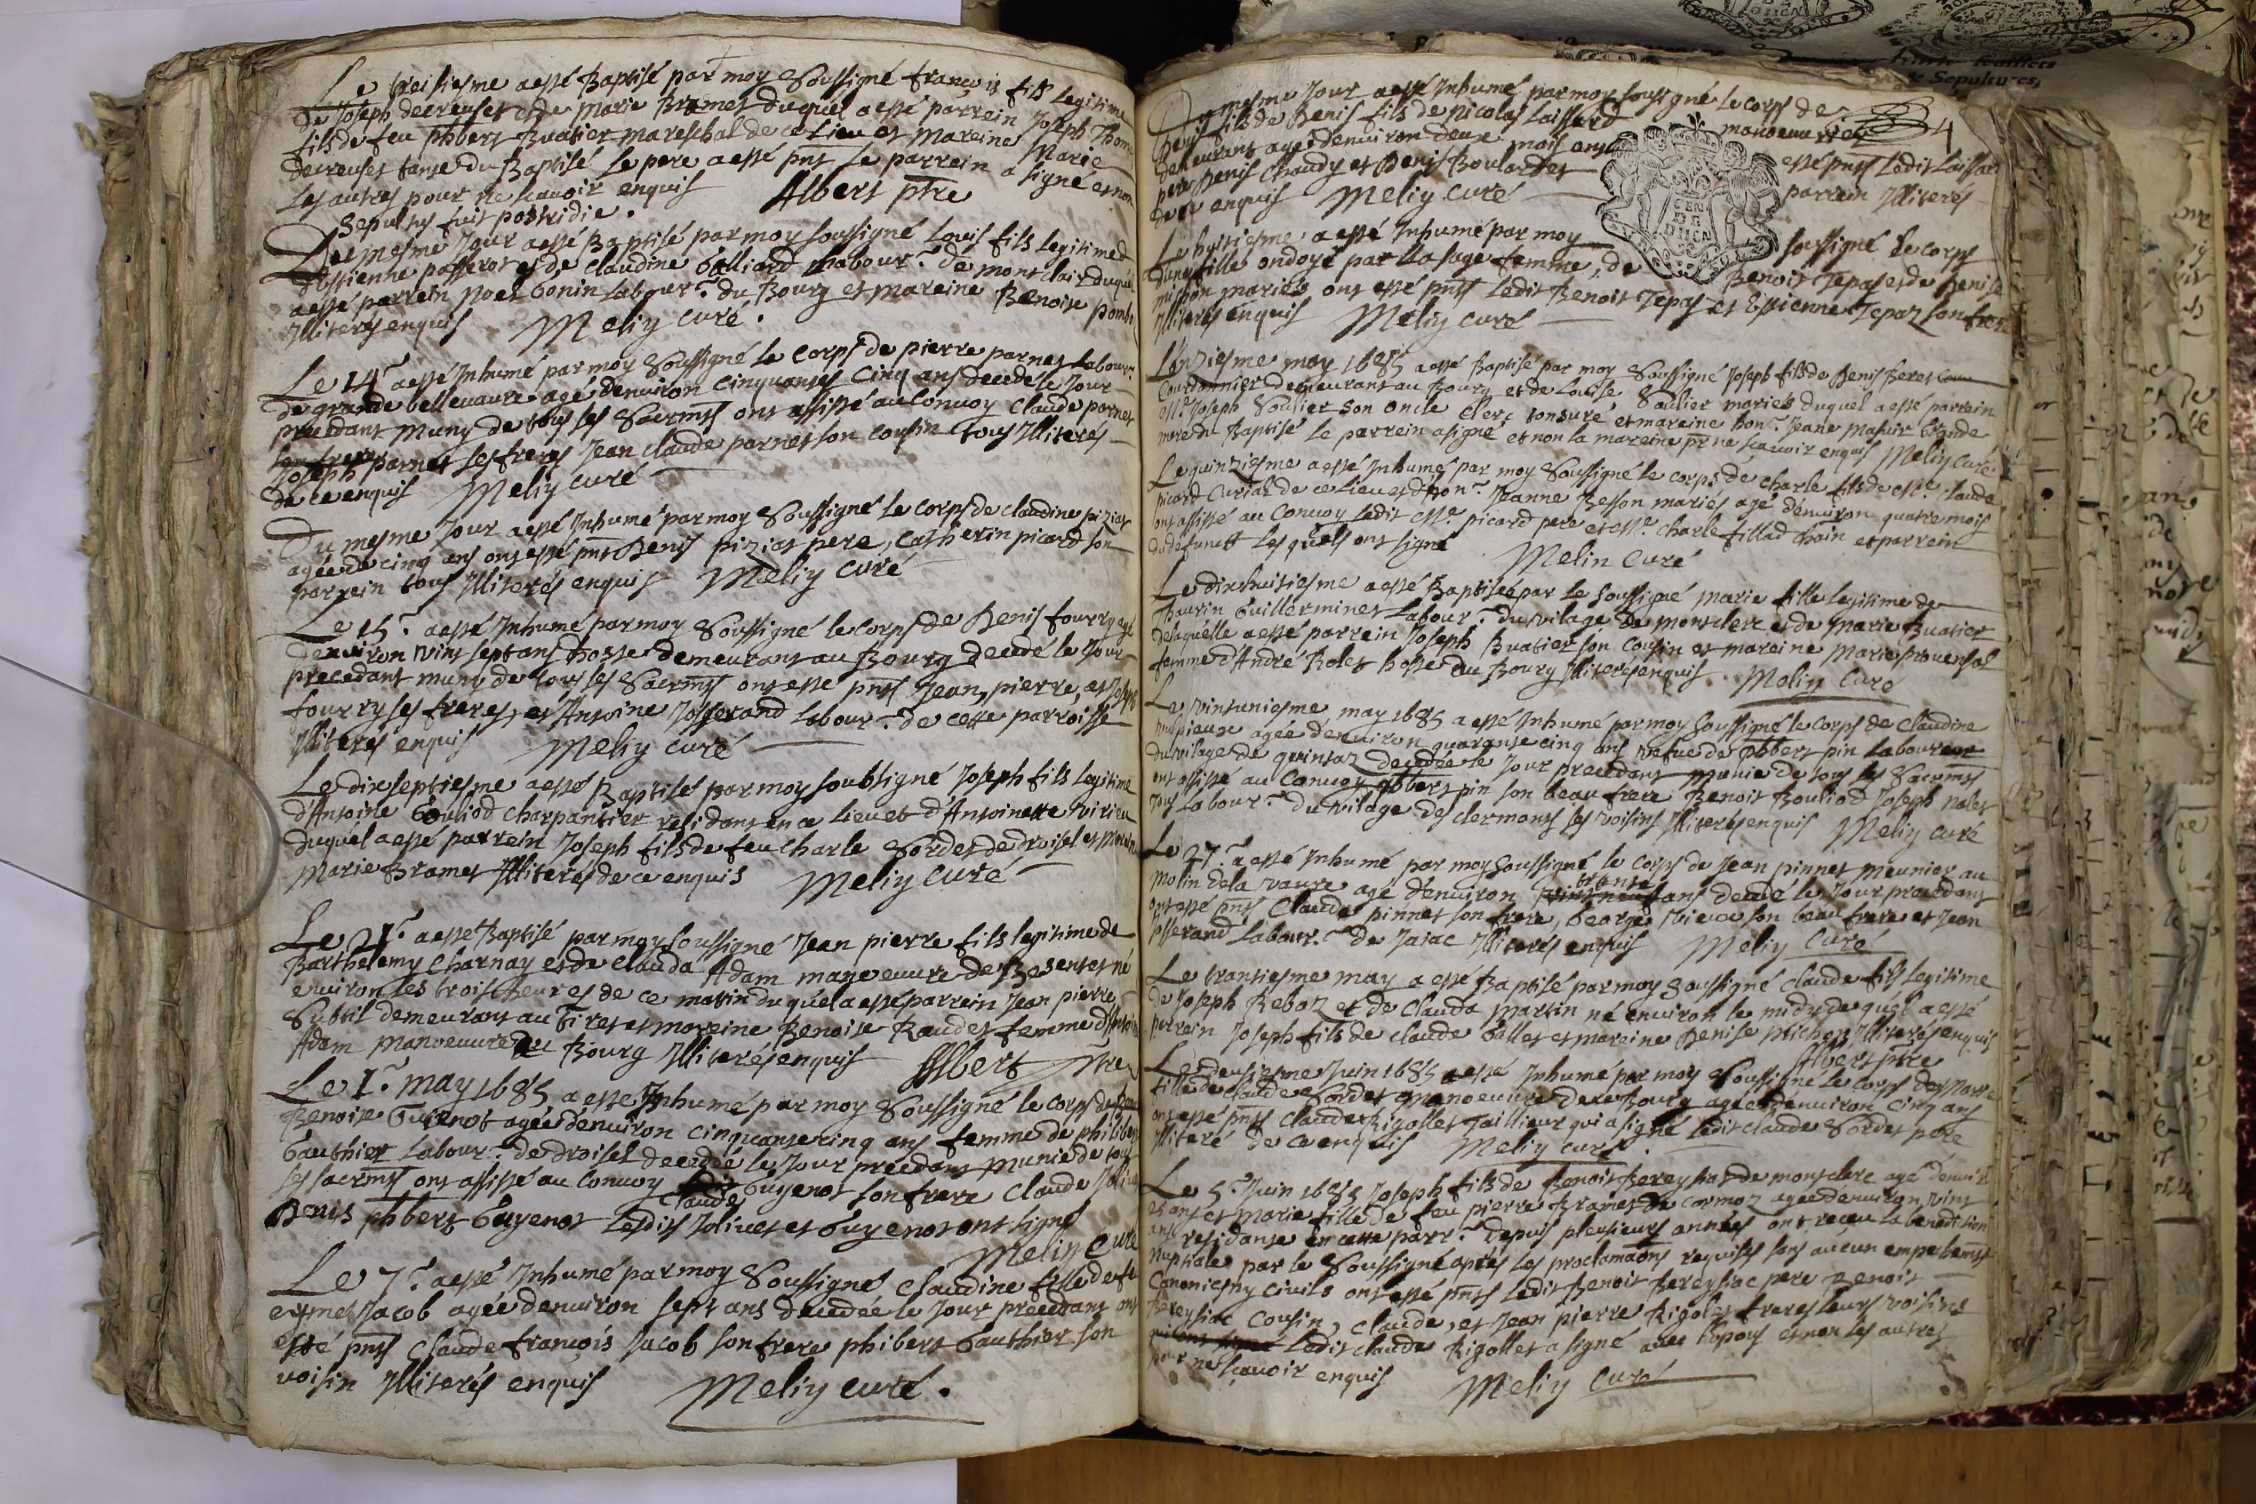 Le treisiesme a esté Baptisé par moy Soussigné francois fils legitime
de Joseph decreuset et de Marie Bramet duquel a esté parrein Joseph Thomas
fils de feu phbert Buatier mareschal de ce Lieu et Mareine Marie
decreuset tante du Baptisé Le pere a esté pnt Le parrein a signé et non
Les autres pour ne scavoir enquis Albert ptre
Sepultus fuit postridie.
Du mesme Jour a esté Baptisé par moy soussigné Louis fils legitime
d'Estienne passerot et de Claudine Galliard Labour.r de montclair duquel
a esté parrein Noel Gonin Labour.r du Bourg et mareine Benoite
Illiterés enquis Meliy curé.
Le 14.e a esté Inhumé par moy Soussigné le corps de pierre parnet Labour.r
de grande bellevaure agé denuiron cinquantes cinq ans decedé le Jour
precedant muny de tous ses Sacrmts ont assisté au Convoy Claude parnet
Joseph parnet ses freres Jean claude parnet son cousin tous Illiterés
de ce enquis Meliy curé
Du mesme Jour a esté Inhumé par moy Soussigné Le corps de claudine piziat
agée de cinq ans ont esté pnts Denis piziat pere, Catherin picard son
parrein tous Illiterés enquis Meliy curé
Le 15.e a esté Inhumé par moy Soussigné le corps de Denis fourry agé
denuiron vint sept ans hoste demeurant au Bourg decedé le Jour
precedant muny de tous ses Sacrmts ont esté pnts Jean, pierre, et Joseph
fourry ses freres, et Antoine Josserand Labour.r de cette parroisse
Illiterés enquis Meliy curé
Le dixseptiesme a esté Baptisé par moy soubsigné Joseph fils legitime
d'Antoine Gouliod charpantier residant en ce Lieu et d'Antoinette Virieu
duquel a esté parrein Joseph fils de feu charle Sordet de droisel et Mareine
Marie Bramet Illiterés de ce enquis Meliy curé
Le 21.e a esté Baptisé par moy soussigné Jean pierre fils legitime de
Barthelemy Charnay et de Clauda Adam manoeuure de Besentet né
enuiron les trois heures de ce matin duquel a esté parrein Jean pierre
Subtil demeurant au Tiret et mareine Benoite Raudet femme d'Antoine
Adam manoeuure du Bourg Illiterés enquis Albert ptre
Le 1.r may 1685 a esté Inhumé par moy Soussigné le corps de
Benoite Guyenot agée denuiron cinquante cinq ans femme de philibert
Gauthier Labour.r de droisel decedée le Jour precedant munie de tous
ses sacrmts ont assisté au Convoy Claude Guyenot son frere Claude
Denis phbert Guyenot Lesdits Jolivet et Guyenot ont signé
Melin Curé
Le 7.e a esté Inhumé par moy Soussigné Claudine fille de feu
esmet Jacob agée denuiron sept ans decedée le Jour precedant ont
esté pnts Claude francois Jacob son frere phibert Gauthier son
voisin Illiterés enquis Meliy curé.
Du mesme Jour a esté Inhumé par moy soussigné le corps de
Denis fils de Denis fils de Nicolas Laissard manoeuure 4
demeurant agé denuiron deux mois ont esté pnts Ledit Laissard
pere Denis Chaudy et Denis Boulardet parrein Illiterés
de ce enquis Meliy curé
GEN DE DIION
Le huitiesme a esté Inhumé par moy soussigné le corps
d'une fille ondoyé par la sage femme, de Benoit Tepas et de Denise
mission mariés ont esté pnts Ledit Benoit Tepas et Estienne Tepaz son frere
Illiterés enquis Meliy curé
L'onziesme may 1685 a esté Baptisé par moy Soussigné Joseph fils de Denis Beret
Courdannier demeurant au Bourg et de Louise Saulier mariés duquel a esté parrein
Joseph Saulier son oncle clerc tonsuré et mareine hon.e Jeane Masuir Grande
mere du Baptisé Le parrein a signé et non la mareine pr ne scavoir enquis Meliy Curé
Le quinziesme a esté Inhumé par moy Soussigné le corps de charle fils de Claude
picard Curial de ce Lieu et d'hon.e Jeanne Besson mariés agé denuiron quatre mois
ont assisté au Convoy Ledit picard pere et charle fillod et parrein
du defunctt Lesquels ont signé Melin Curé
Le dixhuitiesme a esté Baptisée par Le soussigné Marie fille legitime de
Thaurin Guillerminet Labour.r du vilage de montclerc et de Marie Buatier
delaquelle a esté parrein Joseph Buatier son Cousin et mareine Marie prouensal
femme d'André Bolet hoste du Bourg Illiterés enquis Meliy Curé
Le vintuniesme may 1685 a esté Inhumé par moy soussigné le corps de Claudine
vulpieux agée denuiron quarante cinq ans vefue de phbert pin Laboureur
du vilage de quintat decedée le Jour precedant munie de tous ses Sacrmts
ont assisté au Convoy phbert pin son beau frere Benoit Bouliod Joseph nolet
tous Labour.r du vilage des clermont ses voisins Illiterés enquis Meliy curé
Le 27.e a esté Inhumé par moy soussigné le corps de Jean pinnet meunier au
molin dela vaure agé d'enuiron trente ans decedé le Jour precedant
ont esté pnts Claude pinnet son frere, George Vieux son beau frere et Jean
Josserand Labour.r de Jaiac Illiterés enquis Meliy Curé
Le trantiesme may a esté Baptisé par moy soussigné Claude fils legitime
de Joseph Reboz et de Clauda Martin né enuiron le midy duquel a esté
parrein Joseph fils de Claude Gallet et mareine Denise pichon Illiterés enquis
Albert ptre
Le deusiesme Juin 1685 a esté Inhumé par moy Soussigné Le corps
fille de Claude Sordet manoeuure de ce Bourg agée denuiron cinq ans
ont esté pnts Claude Rigollet Tailleur qui a signé Ledit Claude Sordet pere
Illiteré de ce enquis Meliy curé.
Le 5.e Juin 1685 Joseph fils de Benoit Bereysiat de montclerc agé denuiron
ans et Marie fille de feu pierre Bramet de Cormoz agée denuiron vint
ans residante en cette parr.e depuis plusieurs années ont receu La benediction
nuptiale par le Soussigné aprés les proclamaons requises sans aucun empeschemt
Canonicsny civils ont esté pnts Ledit Benoit Bereysiac pere Benoit
Bereysiac Cousin, Claude, et Jean pierre Rigolet freres leurs voisins
Ledit claude Rigollet a signé auec l'epous et non les autres
pour ne scavoir enquis Meliy Curé